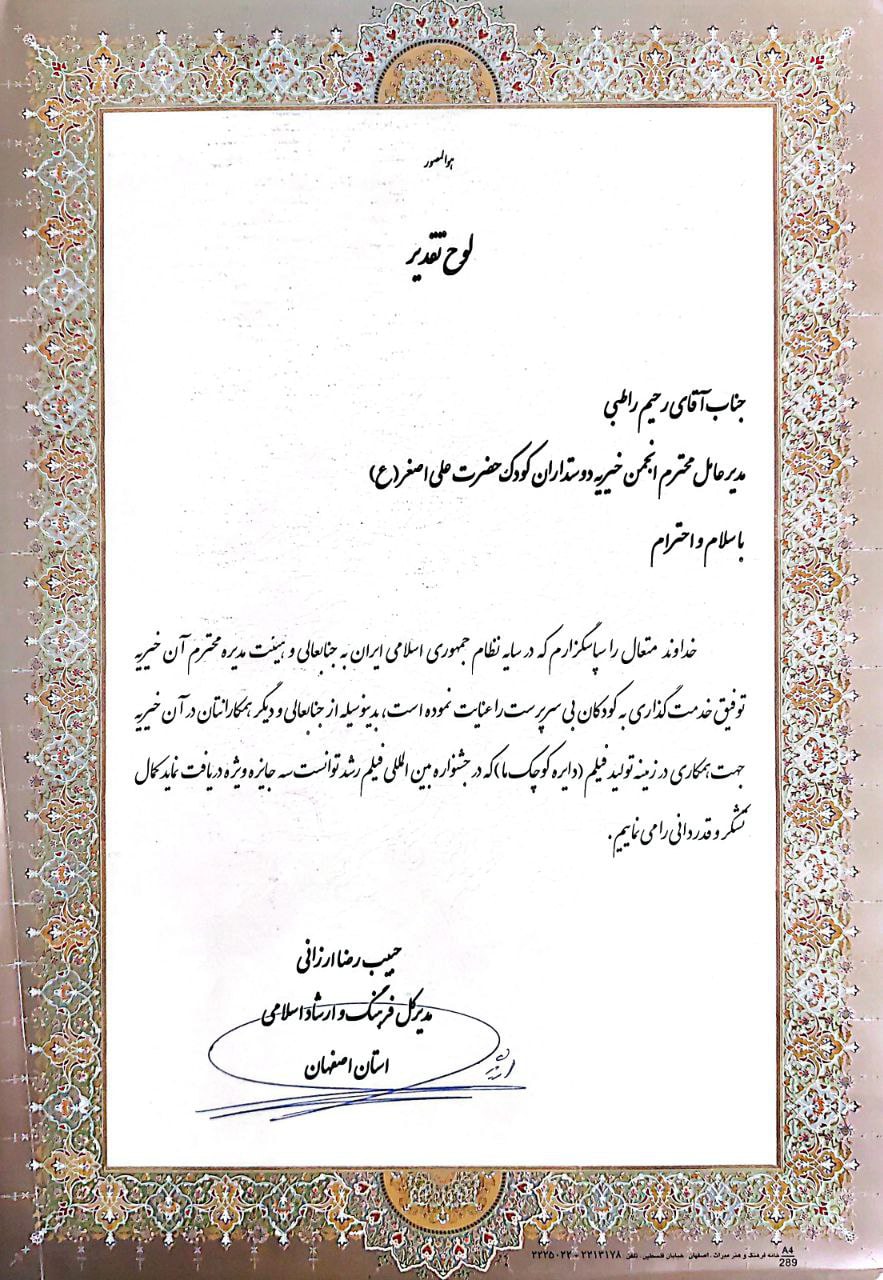 هوالمصور
لوح تقدیر
جناب آقای رحیم راطبی
مدیرعامل محترم انجمن خیریه دوستداران کودک حضرت علی اصغر(ع)
با سلام و احترام
خداوند متعال را سپاسگزارم که در سایه نظام جمهوری اسلامی ایران به جنابعالی و هیئت مدیره محترم آن خیریه
توفیق خدمت گذاری به کودکان بی سرپرست را عنایت نموده است، بدینوسیله از جنابعالی و دیگر همکارانتان در آن خیریه
جهت همکاری در زمینه تولید فیلم (دایره کوچک ما)که در جشنواره بین المللی فیلم رشد توانست سه جایزه ویژه دریافت نماید کمال
تشکر و قدردانی را می نماییم.
حبیب رضا ارزانی
مدیرکل فرهنگ و ارشاد اسلامی
استان اصفهان
A4
289
خانه فرهنگ و هنر میراث - اصفهان خیابان فلسطین - تلفن ۲۲۱۳۱۷۸ - ۲۲۲۵۰۲۲